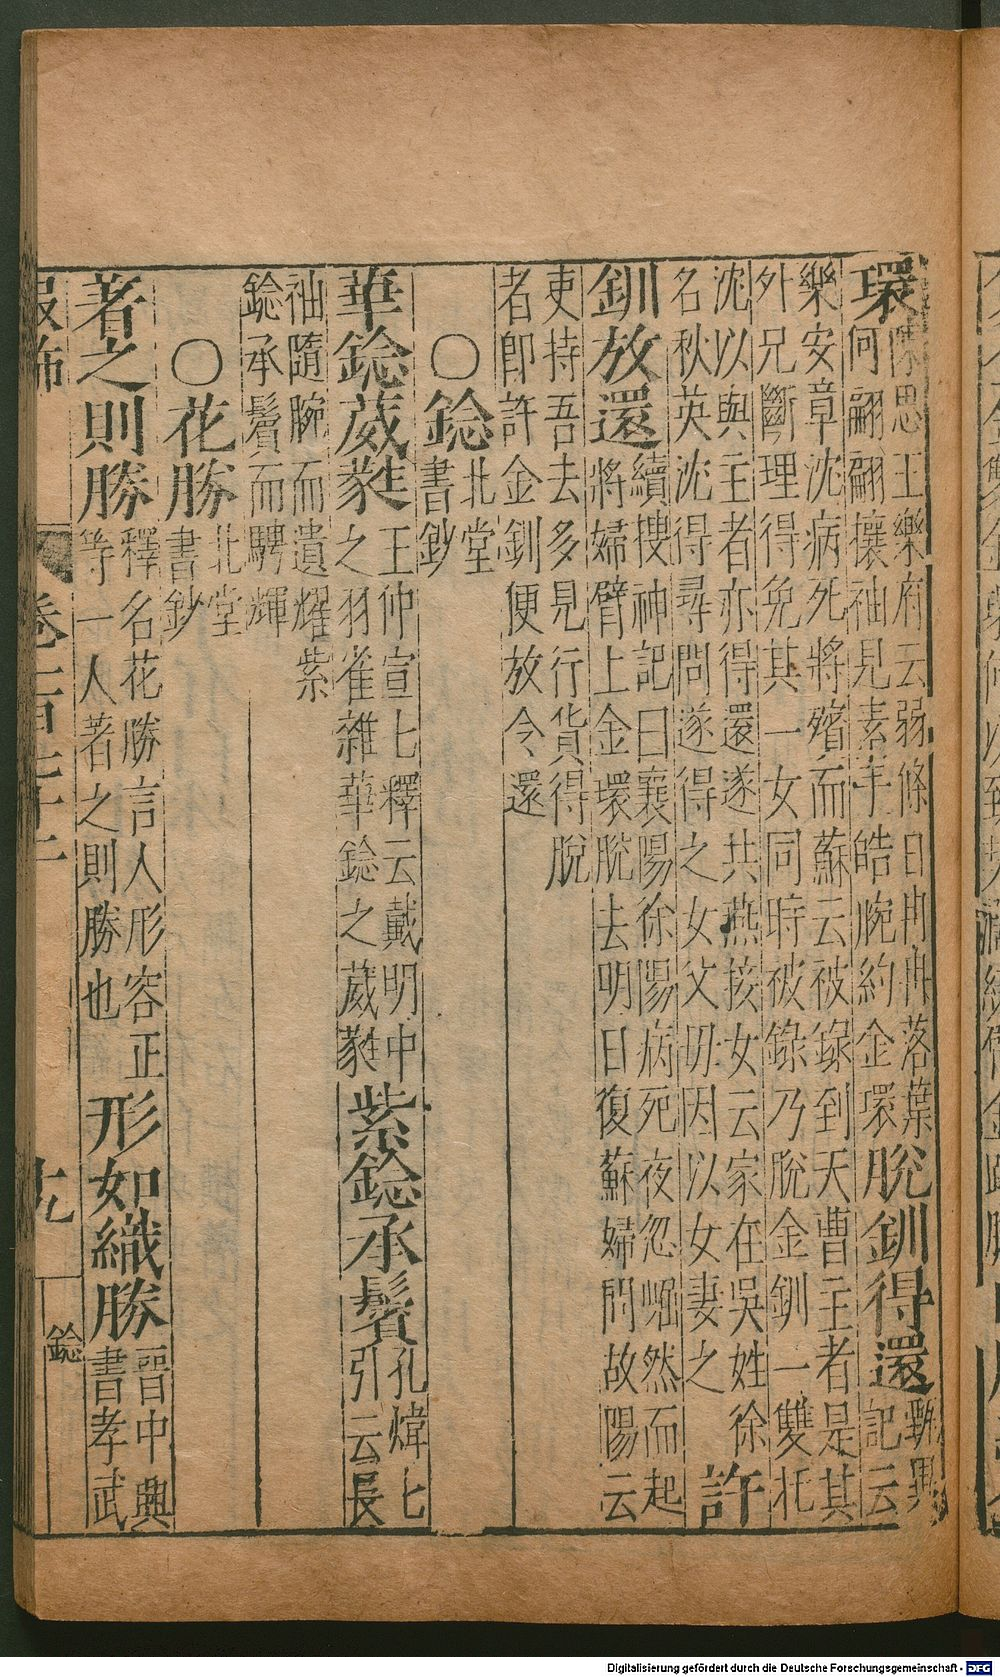 環陳思王樂府云弱條日冉冉落葉
何翩翩攘袖見素手皓腕約金環脫釧得還甄異
記云
樂安章沈病死將殯而蘇云被錄到天曹主者是其
外兄斷理得免其一女同時被錄乃脫金釧一雙托
沈以與主者亦得還遂共燕接女云家在吳姓徐
名秋英沈得尋問遂得之女父毋因以女妻之許
釧放還續搜神記曰襄陽徐陽病死夜忽崛然而起
將婦臂上金環脫去明日復蘇婦問故陽云
吏持吾去多見行貨得脫
者卽許金釧便放令還
○鋔北堂
書鈔
華鋔葳蕤王仲宣七釋云戴明中
之羽雀雜華鋔之葳蕤紫鋔承鬢孔煒七
引云長
袖隨腕而遺耀紫
鋔承鬢而騁輝
○花勝北堂
書鈔
著之則勝釋名花勝言人形容正
等一人著之則勝也形如織勝晉中興
書孝武
服飾
卷二百七十二
十九
鋔
Digitalisierung gefördert durch die Deutsche Forschungsgemeinschaft - DFG